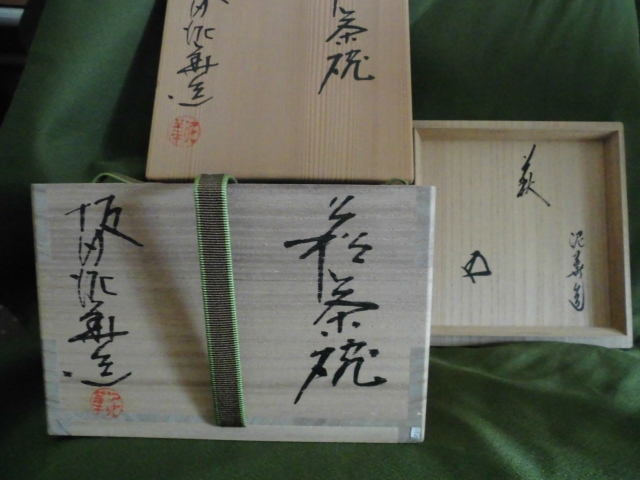 茶碗
田泥華造
萩
泥華造
萩茶碗
坂田泥華造